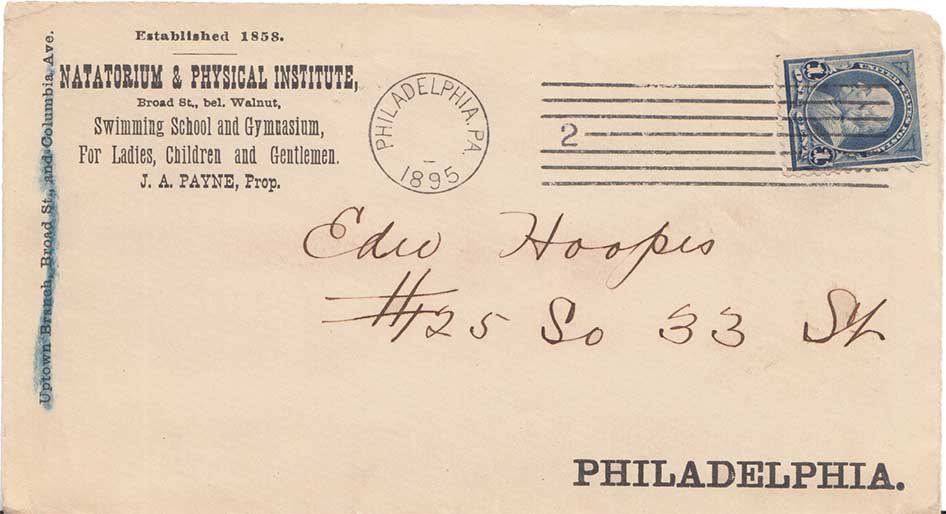 Established 1858.
NATATORIUM & PHYSICAL INSTITUTE,
Broad St., bel. Walnut,
Swimming School and Gymnasium,
For Ladies, Children and Gentlemen.
J. A. PAYNE, Prop.
Uptown Branch, Broad St., and Columbia Ave.
PHILADELPHIA, PA.
1895
2
1 1
UNITED STATES POSTAGE
Edw Hoopes
#125 So 33 St
PHILADELPHIA.